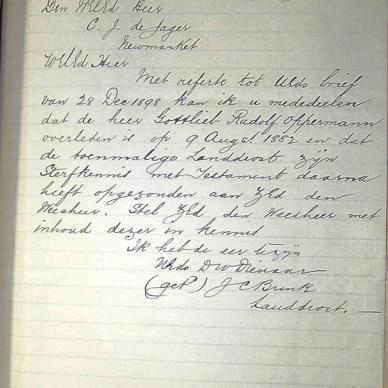 Den WEEd Heer
C. J. de Jager
Newmarket
WEEd Heer
Met referte tot UEds brief
van 28 Dec 1898 kan ik u mededeelen
dat de heer Gottlieb Rudolf Oppermann
overleden is op 9 Augs. 1882 en dat
de toenmalige Landdrost zijn
Sterfkennis met Testament daarna
heeft opgezonden aan ZEd den
Weesheer. Stel ZEd den Weesheer met
inhoud dezer in kennis
Ik heb de eer te zijn
UEds DW Dienaar
(get) J C Brink
Landdrost. —